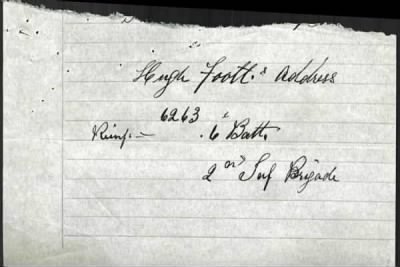 Hugh Foott's Address
6263
Reinf.- . 6 Batt.
2nd Inf Brigade